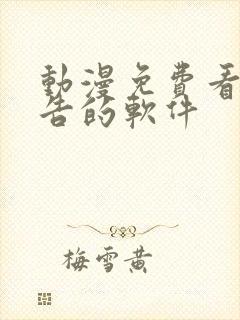 動漫免費看
告的軟件
梅雪黄